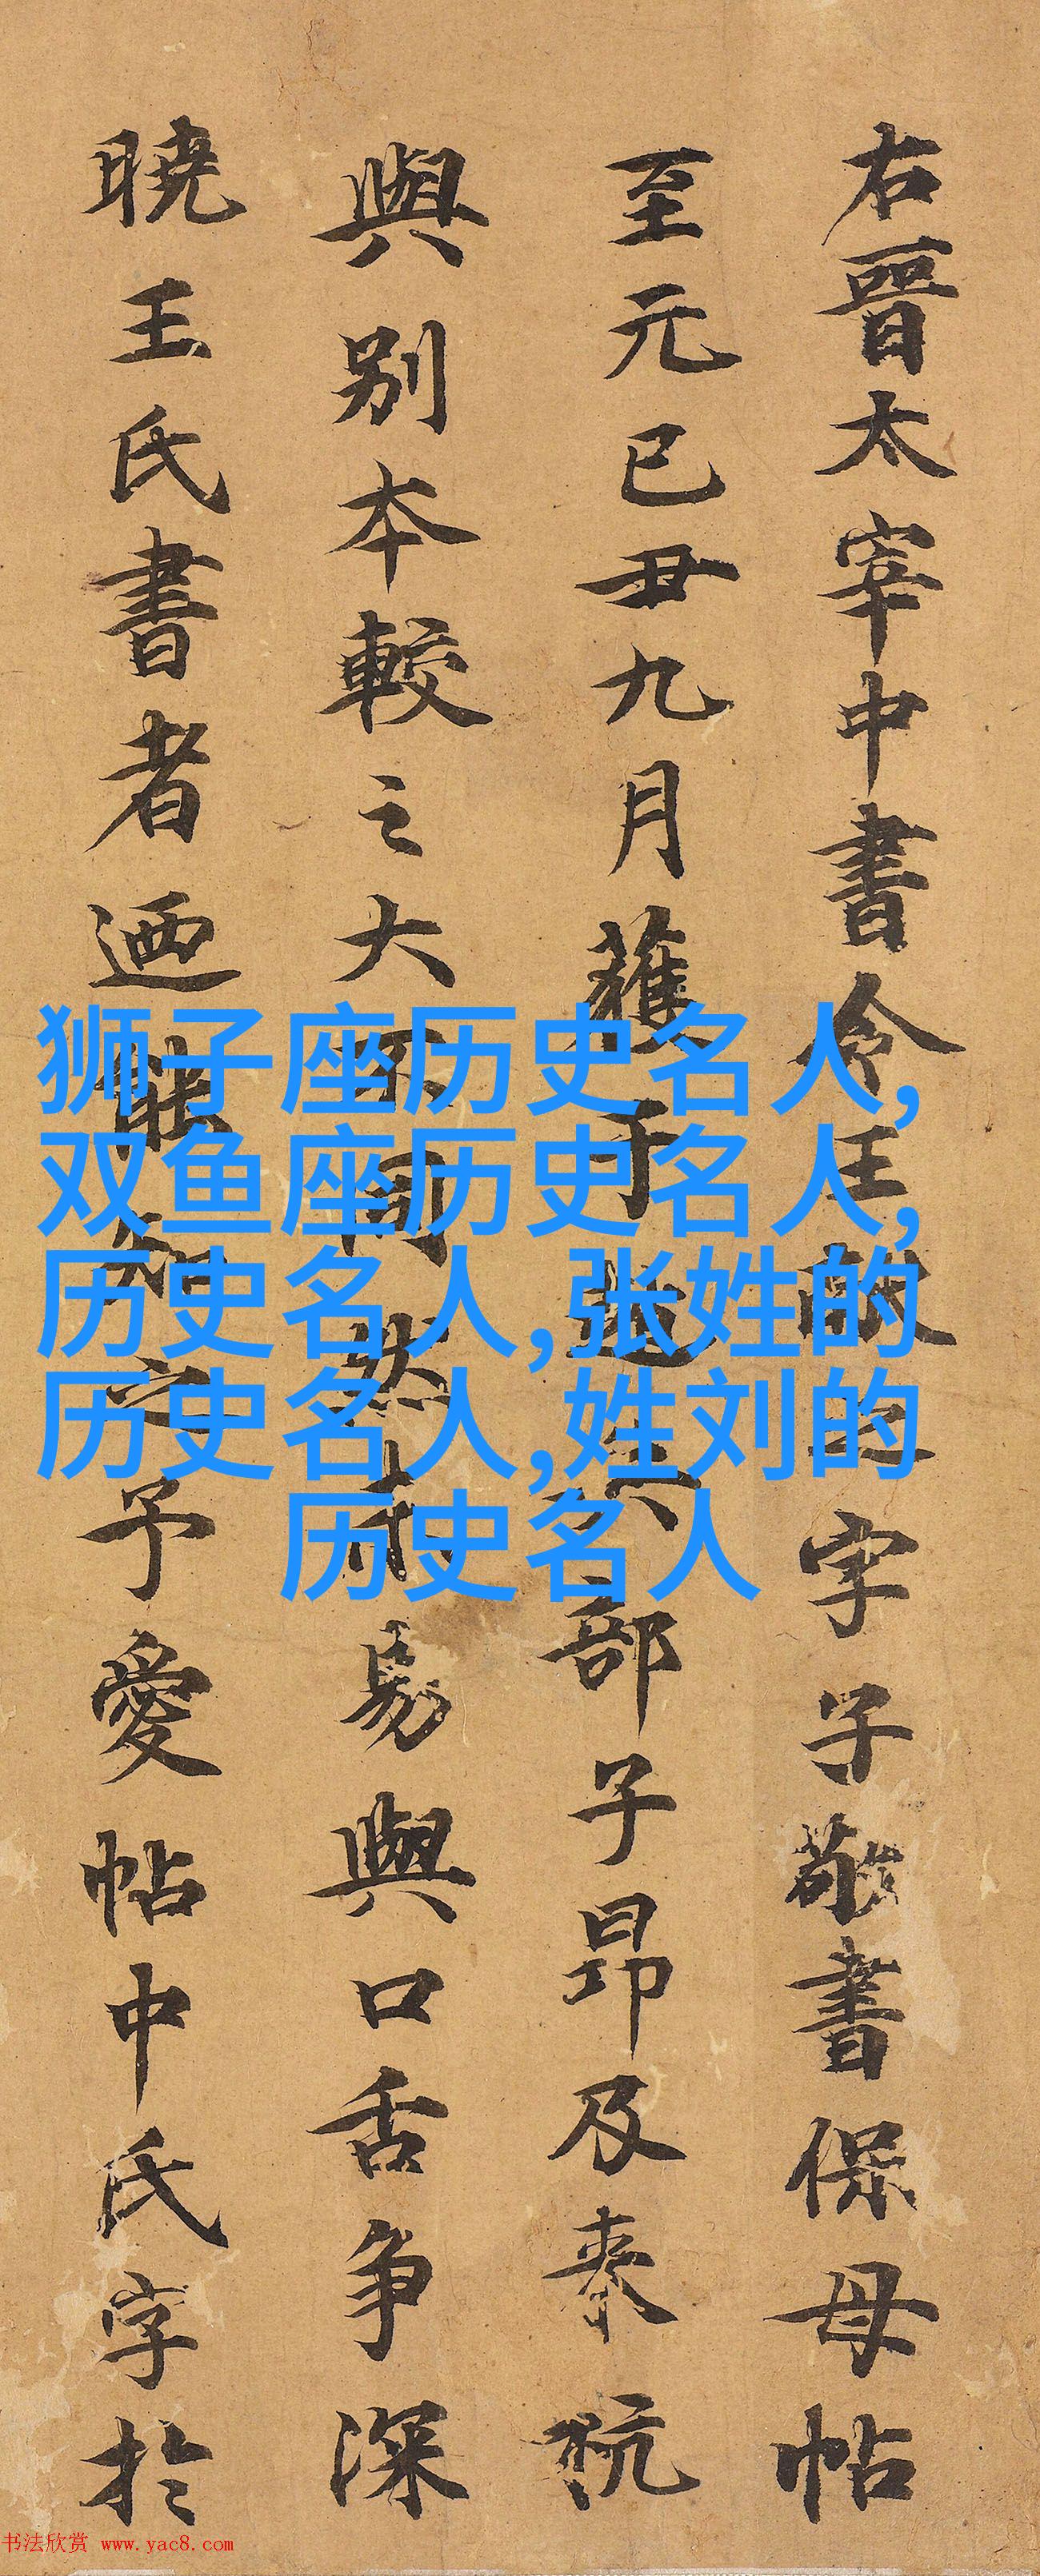 右晉太宰中書令王獻之字子敬書保母帖
至元己丑九月獲于越六部子昂及來玩
與别本較之大不同然未易與口舌争深
曉王氏書者迺能知之予愛帖中氏字於
狮子座历史名人,
双鱼座历史名人,
历史名人,张姓的
历史名人,姓刘的
历史名人
书法欣赏 www.yac8.com